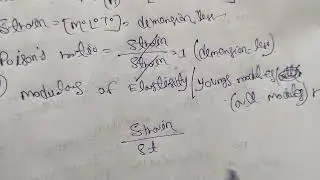 Strain = [M⁰L⁰T⁰] = demension less
Poison's ratio = Strain / Strain = 1 (demension-less)
modulas of Elasticity (Youngs modulas
(all modulas)
Strain
St